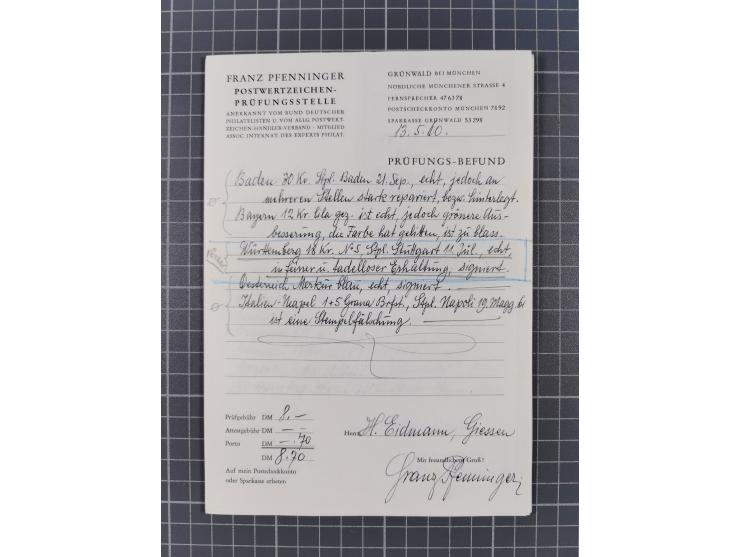 FRANZ PFENNINGER
POSTWERTZEICHEN-
PRÜFUNGSSTELLE
ANERKANNT VOM BUND DEUTSCHER
PHILATELISTEN U. VOM ALLG. POSTWERT-
ZEICHEN-HÄNDLER-VERBAND · MITGLIED
ASSOC. INTERNAT. DES EXPERTS PHILAT.
GRÜNWALD BEI MÜNCHEN
NÖRDLICHE MÜNCHENER STRASSE 4
FERNSPRECHER 476378
POSTSCHECKKONTO MÜNCHEN 7892
SPARKASSE GRÜNWALD 53298
13.5.60.
PRÜFUNGS-BEFUND
Baden 30 Kr. Stpl. Baden 21. Sep., echt, jedoch an
mehreren Stellen stark repariert, bezw. hinterlegt.
Bayern 12 Kr. lila gez. ist echt, jedoch grönere Aus-
besserung, die Farbe hat gelitten, ist zu blass.
Württemberg 18 Kr. N°5, Stpl. Stuttgart 11. Jul., echt,
in fairer u. tadelloser Erhaltung, signiert.
Oesterreich, Merkur blau, echt, signiert.
Italien-Neapel 1+5 Grana Brfst., Stpl. Napoli 19. Magg. 61
ist eine Stempelfälschung.
Prüfgebühr DM 8.—
Attestgebühr DM — —
Porto DM —.70
DM 8.70
Auf mein Postscheckkonto
oder Sparkasse erbeten
Herrn H. Eidmann, Giessen
Mit freundlichem Gruß!
Franz Pfenninger